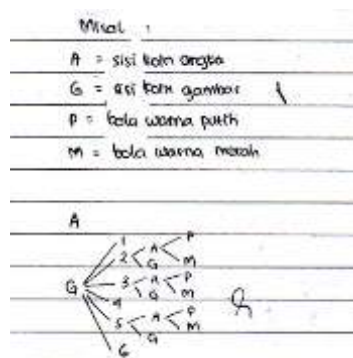 Misal :
A = sisi koin angka
G = sisi koin gambar
P = bola warna putih
M = bola warna merah
A
1
2 A P
G M
G 3 A P
G M
4
5 A P
G M
6